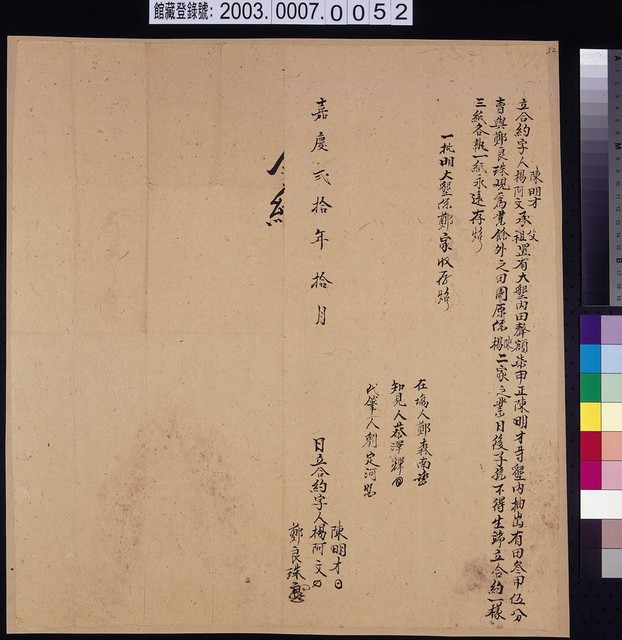 館藏登錄號: 2003.0007.0052
52
立合約字人陳明才楊阿文承祖父置有大墾內田聲額柒甲正陳明才等墾內抽出有田叁甲伍分
賣與鄭良珠觀為業餘外之田園原係陳楊二家之業日後子孫不得生端立合約一樣
三紙各執一紙永遠存炤
一批明大墾係鄭家收存炤
在場人鄭森南
知見人蔡澤輝
代筆人劉定河
嘉慶貳拾年拾月 日立合約字人陳明才楊阿文
鄭良珠